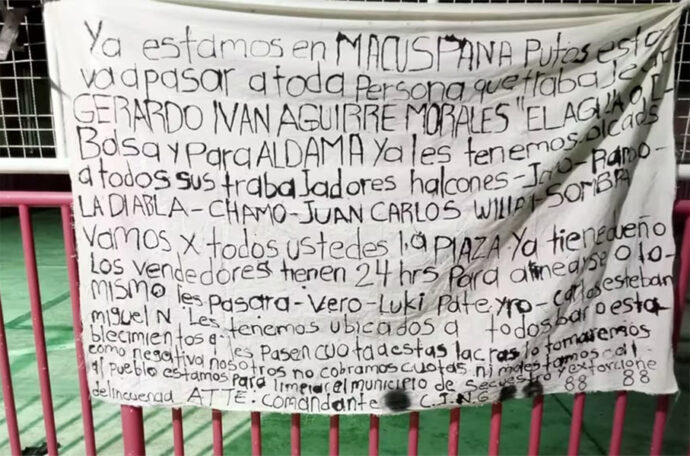 Ya estamos en MACUSPANA Putos esto
va a pasar a toda Persona que trabaje
GERARDO IVAN AGUIRRE MORALES "EL AGUA O EL
Bolsa y Para ALDAMA Ya les tenemos
a todos sus trabajadores halcones-
LA DIABLA-CHAMO-JUAN CARLOS SOMBRA
vamos x todos ustedes la PLAZA Ya tiene dueño
Los vendedores tienen 24 hrs Para alinearse O lo
mismo les Pasara-Vero-Luki Pate yro-Carlos esteban
miguel N. Les tenemos ubicados a todos bar o esta
blecimientos q les Pasen cuota a estas lacras lo tomaremos
como negativa nosotros no cobramos cuotas ni molestamos
al pueblo estamos para limpiar el municipio de secuestro y extorcione
delincuencia ATTE: Comandante C.J.N.G 88 88